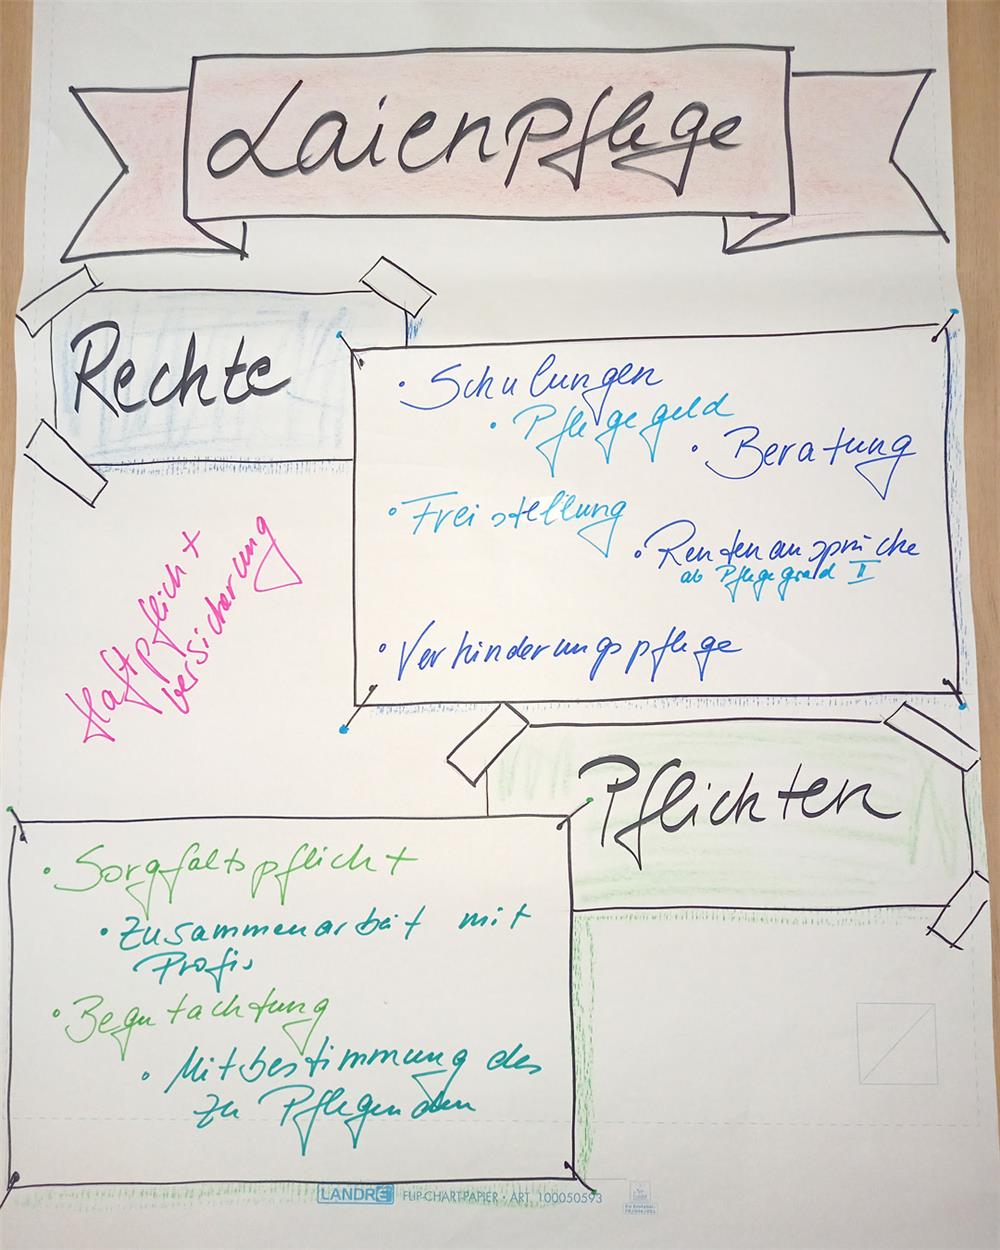 Laienpflege
Rechte
• Schulungen
• Pflegegeld
• Beratung
• Freistellung
• Rentenansprüche
ab Pflegegrad II
• Verhinderungspflege
Haftpflicht
versicherung
Pflichten
• Sorgfaltspflicht
• Zusammenarbeit mit
Profis
• Begutachtung
• Mitbestimmung des
zu Pflegenden
LANDRÉ FLIP-CHART-PAPIER · ART. 100050593